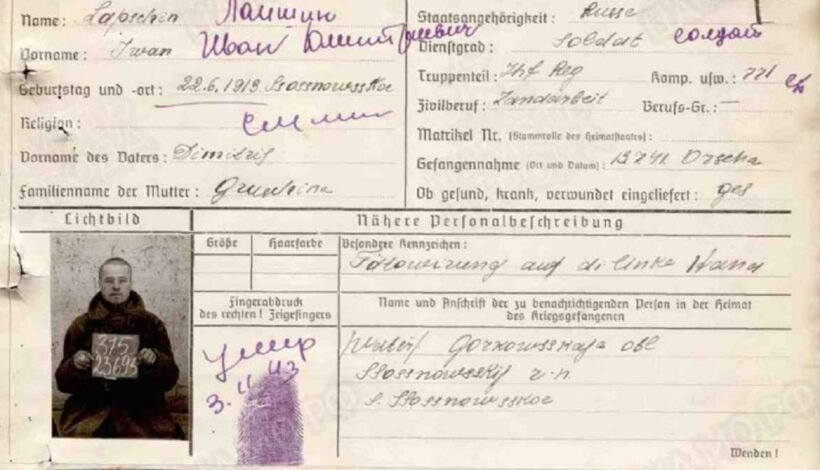 Name: Lapschin Лапшин
Vorname: Iwan Иван Дмитриевич
Geburtstag und -ort: 22.6.1919. Sosnowskoe
Religion:
Vorname des Vaters: Dimitrij
Familienname der Mutter: Gruschina
Staatsangehörigkeit: Russe
Dienstgrad: Soldat солдат
Truppenteil: Inf Reg Komp. usw.: 771
Zivilberuf: Landarbeit Berufs-Gr.: —
Matrikel Nr. (Stammrolle des Heimatstaates):
Gefangennahme (Ort und Datum): Orscha
Ob gesund, krank, verwundet eingeliefert: ges
Lichtbild
Nähere Personalbeschreibung
Größe Haarfarbe Besondere Kennzeichen:
Tätowirung auf di linke Hand
Fingerabdruck
des rechten! Zeigefingers
Name und Anschrift der zu benachrichtigenden Person in der Heimat
des Kriegsgefangenen
375
23695
умер
43
Gorkowsskaja obl
Ssosnowsskij r-n
s. Ssosnowsskoe
Wenden!